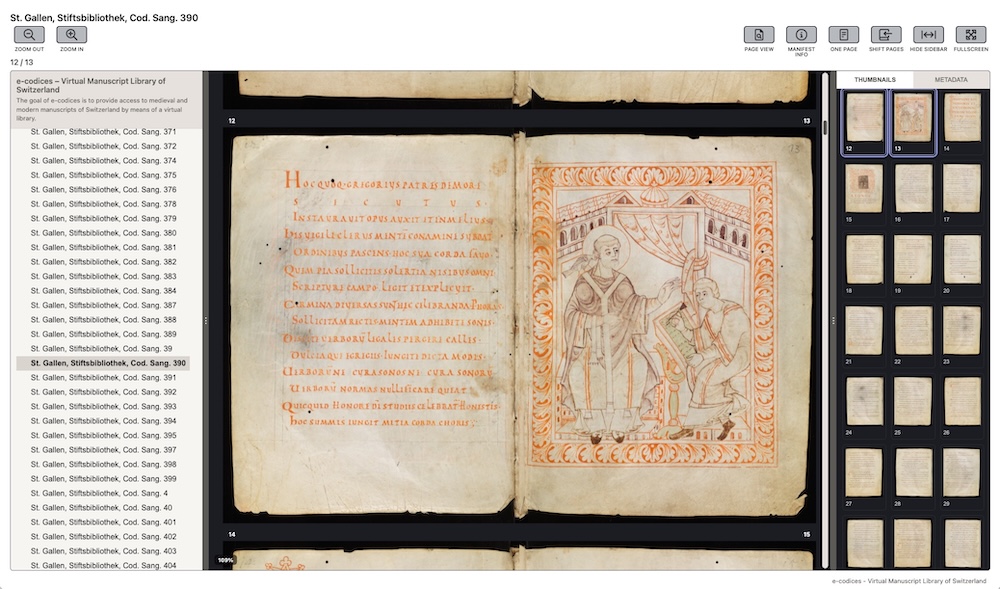 St. Gallen, Stiftsbibliothek, Cod. Sang. 390
ZOOM OUT
ZOOM IN
PAGE VIEW
MANIFEST
INFO
ONE PAGE
SHIFT PAGES
HIDE SIDEBAR
FULLSCREEN
12 / 13
e-codices – Virtual Manuscript Library of
Switzerland
The goal of e-codices is to provide access to medieval and
modern manuscripts of Switzerland by means of a virtual
library.
St. Gallen, Stiftsbibliothek, Cod. Sang. 371
St. Gallen, Stiftsbibliothek, Cod. Sang. 372
St. Gallen, Stiftsbibliothek, Cod. Sang. 374
St. Gallen, Stiftsbibliothek, Cod. Sang. 375
St. Gallen, Stiftsbibliothek, Cod. Sang. 376
St. Gallen, Stiftsbibliothek, Cod. Sang. 378
St. Gallen, Stiftsbibliothek, Cod. Sang. 379
St. Gallen, Stiftsbibliothek, Cod. Sang. 380
St. Gallen, Stiftsbibliothek, Cod. Sang. 381
St. Gallen, Stiftsbibliothek, Cod. Sang. 382
St. Gallen, Stiftsbibliothek, Cod. Sang. 383
St. Gallen, Stiftsbibliothek, Cod. Sang. 384
St. Gallen, Stiftsbibliothek, Cod. Sang. 387
St. Gallen, Stiftsbibliothek, Cod. Sang. 388
St. Gallen, Stiftsbibliothek, Cod. Sang. 389
St. Gallen, Stiftsbibliothek, Cod. Sang. 39
St. Gallen, Stiftsbibliothek, Cod. Sang. 390
St. Gallen, Stiftsbibliothek, Cod. Sang. 391
St. Gallen, Stiftsbibliothek, Cod. Sang. 392
St. Gallen, Stiftsbibliothek, Cod. Sang. 393
St. Gallen, Stiftsbibliothek, Cod. Sang. 394
St. Gallen, Stiftsbibliothek, Cod. Sang. 395
St. Gallen, Stiftsbibliothek, Cod. Sang. 397
St. Gallen, Stiftsbibliothek, Cod. Sang. 398
St. Gallen, Stiftsbibliothek, Cod. Sang. 399
St. Gallen, Stiftsbibliothek, Cod. Sang. 4
St. Gallen, Stiftsbibliothek, Cod. Sang. 40
St. Gallen, Stiftsbibliothek, Cod. Sang. 401
St. Gallen, Stiftsbibliothek, Cod. Sang. 402
St. Gallen, Stiftsbibliothek, Cod. Sang. 403
St. Gallen, Stiftsbibliothek, Cod. Sang. 404
12 13
13
HOC QUOQ· GREGORIUS PATRES DE MORE
SECUTUS
INSTAURAVIT OPUS AUXIT ET IN MELIUS
VIGILI CLERUS MENTE CONAMINE SUBDAT
ORDINIBUS PASCENS HOC SUA CORDA FAVO
QUEM PIA SOLLICITIS SOLERTIA NISIBUS OMNI
SCRIPTURE CAMPO LEGIT ET EXPLICUIT
CARMINA DIVERSAS CELEBRANDA
SOLLICITAM RECTIS MENTEM ADHIBETE SONIS
VERBORU LEGALES PERGERE CALLES
DULCIAQUE EGREGIIS IUNGITE DICTA MODIS
VERBORU NE CURA SONOS NE CURA SONORU
VERBORU NORMAS NULLIFICARE QUEAT
QUICQUID HONORE DI STUDIIS CELEBRAT HONESTIS
HOC SUMMIS IUNGIT MITIA CORDA CHORIS
14 15
109%
THUMBNAILS
METADATA
12 13 14
15 16 17
18 19 20
21 22 23
24 25 26
27 28 29
e-codices - Virtual Manuscript Library of Switzerland